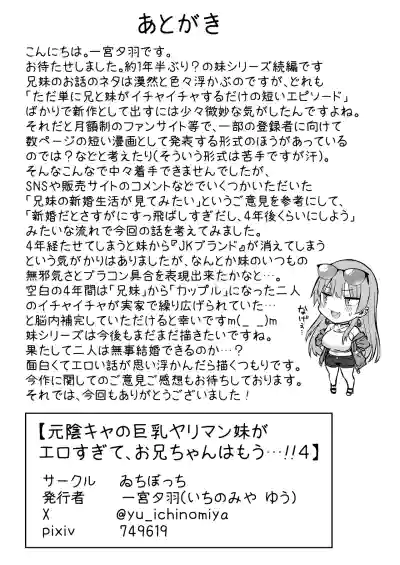 あとがき
こんにちは。一宮夕羽です。
お待たせしました。約1年半ぶり？の妹シリーズ続編です
兄妹のお話のネタは漠然と色々浮かぶのですが、どれも
「ただ単に兄と妹がイチャイチャするだけの短いエピソード」
ばかりで新作として出すには少々微妙な気がしたんですよね。
それだと月額制のファンサイト等で、一部の登録者に向けて
数ページの短い漫画として発表する形式のほうがあっている
のでは？などと考えたり(そういう形式は苦手ですが汗)。
そんなこんなで中々着手できませんでしたが、
SNSや販売サイトのコメントなどでいくつかいただいた
「兄妹の新婚生活が見てみたい」というご意見を参考にして、
「新婚だとさすがにすっ飛ばしすぎだし、4年後くらいにしよう」
みたいな流れで今回の話を考えてみました。
4年経たせてしまうと妹から『JKブランド』が消えてしまう
という気がかりはありましたが、なんとか妹のいつもの
無邪気さとブラコン具合を表現出来たかなと…。
空白の4年間は「兄妹」から「カップル」になった二人
のイチャイチャが実家で繰り広げられていた…
と脳内補完していただけると幸いですm(_ _)m
妹シリーズは今後もまだまだ描きたいですね。
果たして二人は無事結婚できるのか…？
面白くてエロい話が思い浮かんだら描くつもりです。
今作に関してのご意見ご感想もお待ちしております。
それでは、今回もありがとうございました！
なげぇ…
【元陰キャの巨乳ヤリマン妹が
エロすぎて、お兄ちゃんはもう…!!4】
サークル ゐちぼっち
発行者 一宮夕羽(いちのみや ゆう)
X @yu_ichinomiya
pixiv 749619